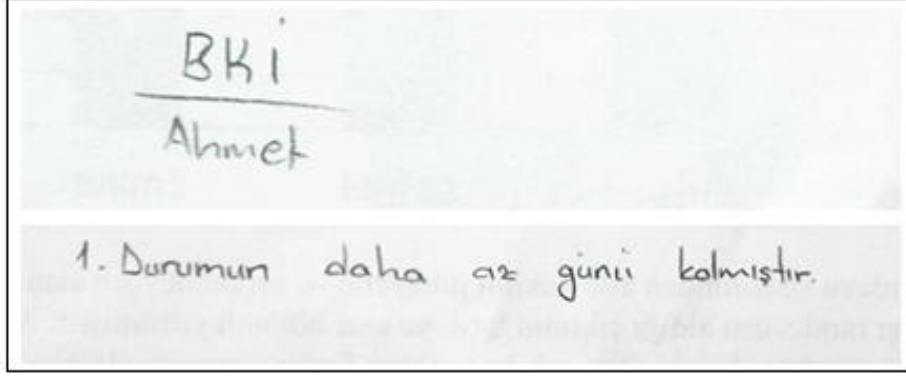 BKİ
Ahmet
1. Durumun daha az günü kalmıştır.